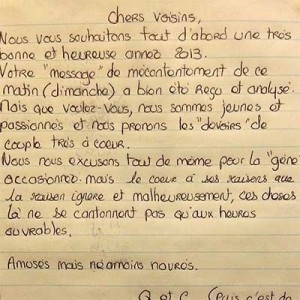 chers voisins,
Nous vous souhaitons tout d'abord une très
bonne et heureuse année 2013.
Votre "message" de mécontentement de ce
matin (dimanche) a bien été reçu et analysé.
Mais que voulez-vous, nous sommes jeunes et
passionnés et nous prenons les "devoirs" de
couple très à coeur.
Nous nous excusons tout de même pour la "gêne"
occasionnée. mais le coeur a ses raisons que
la raison ignore et malheureusement, ces choses
là ne se cantonnent pas qu'aux heures
ouvrables.
Amusés mais néamoins navrés.
Q et C (Puis c'est de